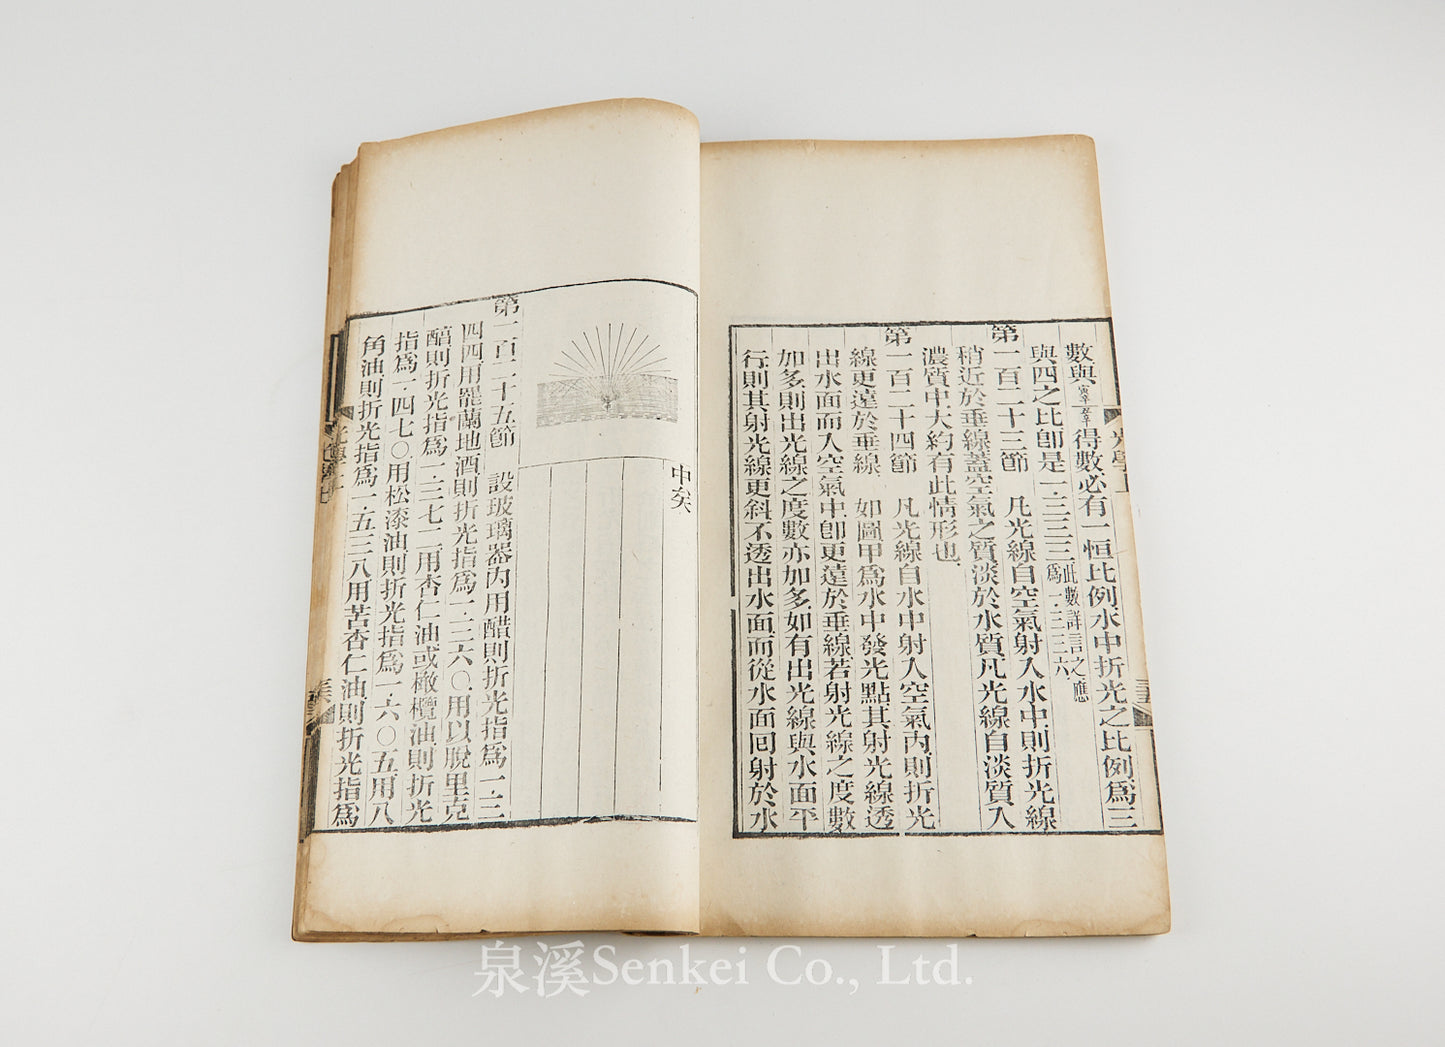 數與寅辛癸辛得數必有一恒比例水中折光之比例爲三
與四之比卽是一·三三三此數詳言之應爲一·三三六
第一百二十三節　凡光線自空氣射入水中則折光線
稍近於垂線蓋空氣之質淡於水質凡光線自淡質入
濃質中大約有此情形也
第一百二十四節　凡光線自水中射入空氣內則折光
線更遠於垂線　如圖甲爲水中發光點其射光線透
出水面而入空氣中卽更遠於垂線若射光線之度數
加多則出光線之度數亦加多如有出光線與水面平
行則其射光線更斜不透出水面而從水面回射於水
中矣
第一百二十五節　設玻璃器內用醋則折光指爲一·三
四四用罷蘭地酒則折光指爲一·三六〇用以脫里克
醕則折光指爲一·三七二用杏仁油或橄欖油則折光
指爲一·四七〇用松漆油則折光指爲一·六〇五用八
角油則折光指爲一·五三八用苦杏仁油則折光指爲
光學上
泉溪Senkei Co., Ltd.